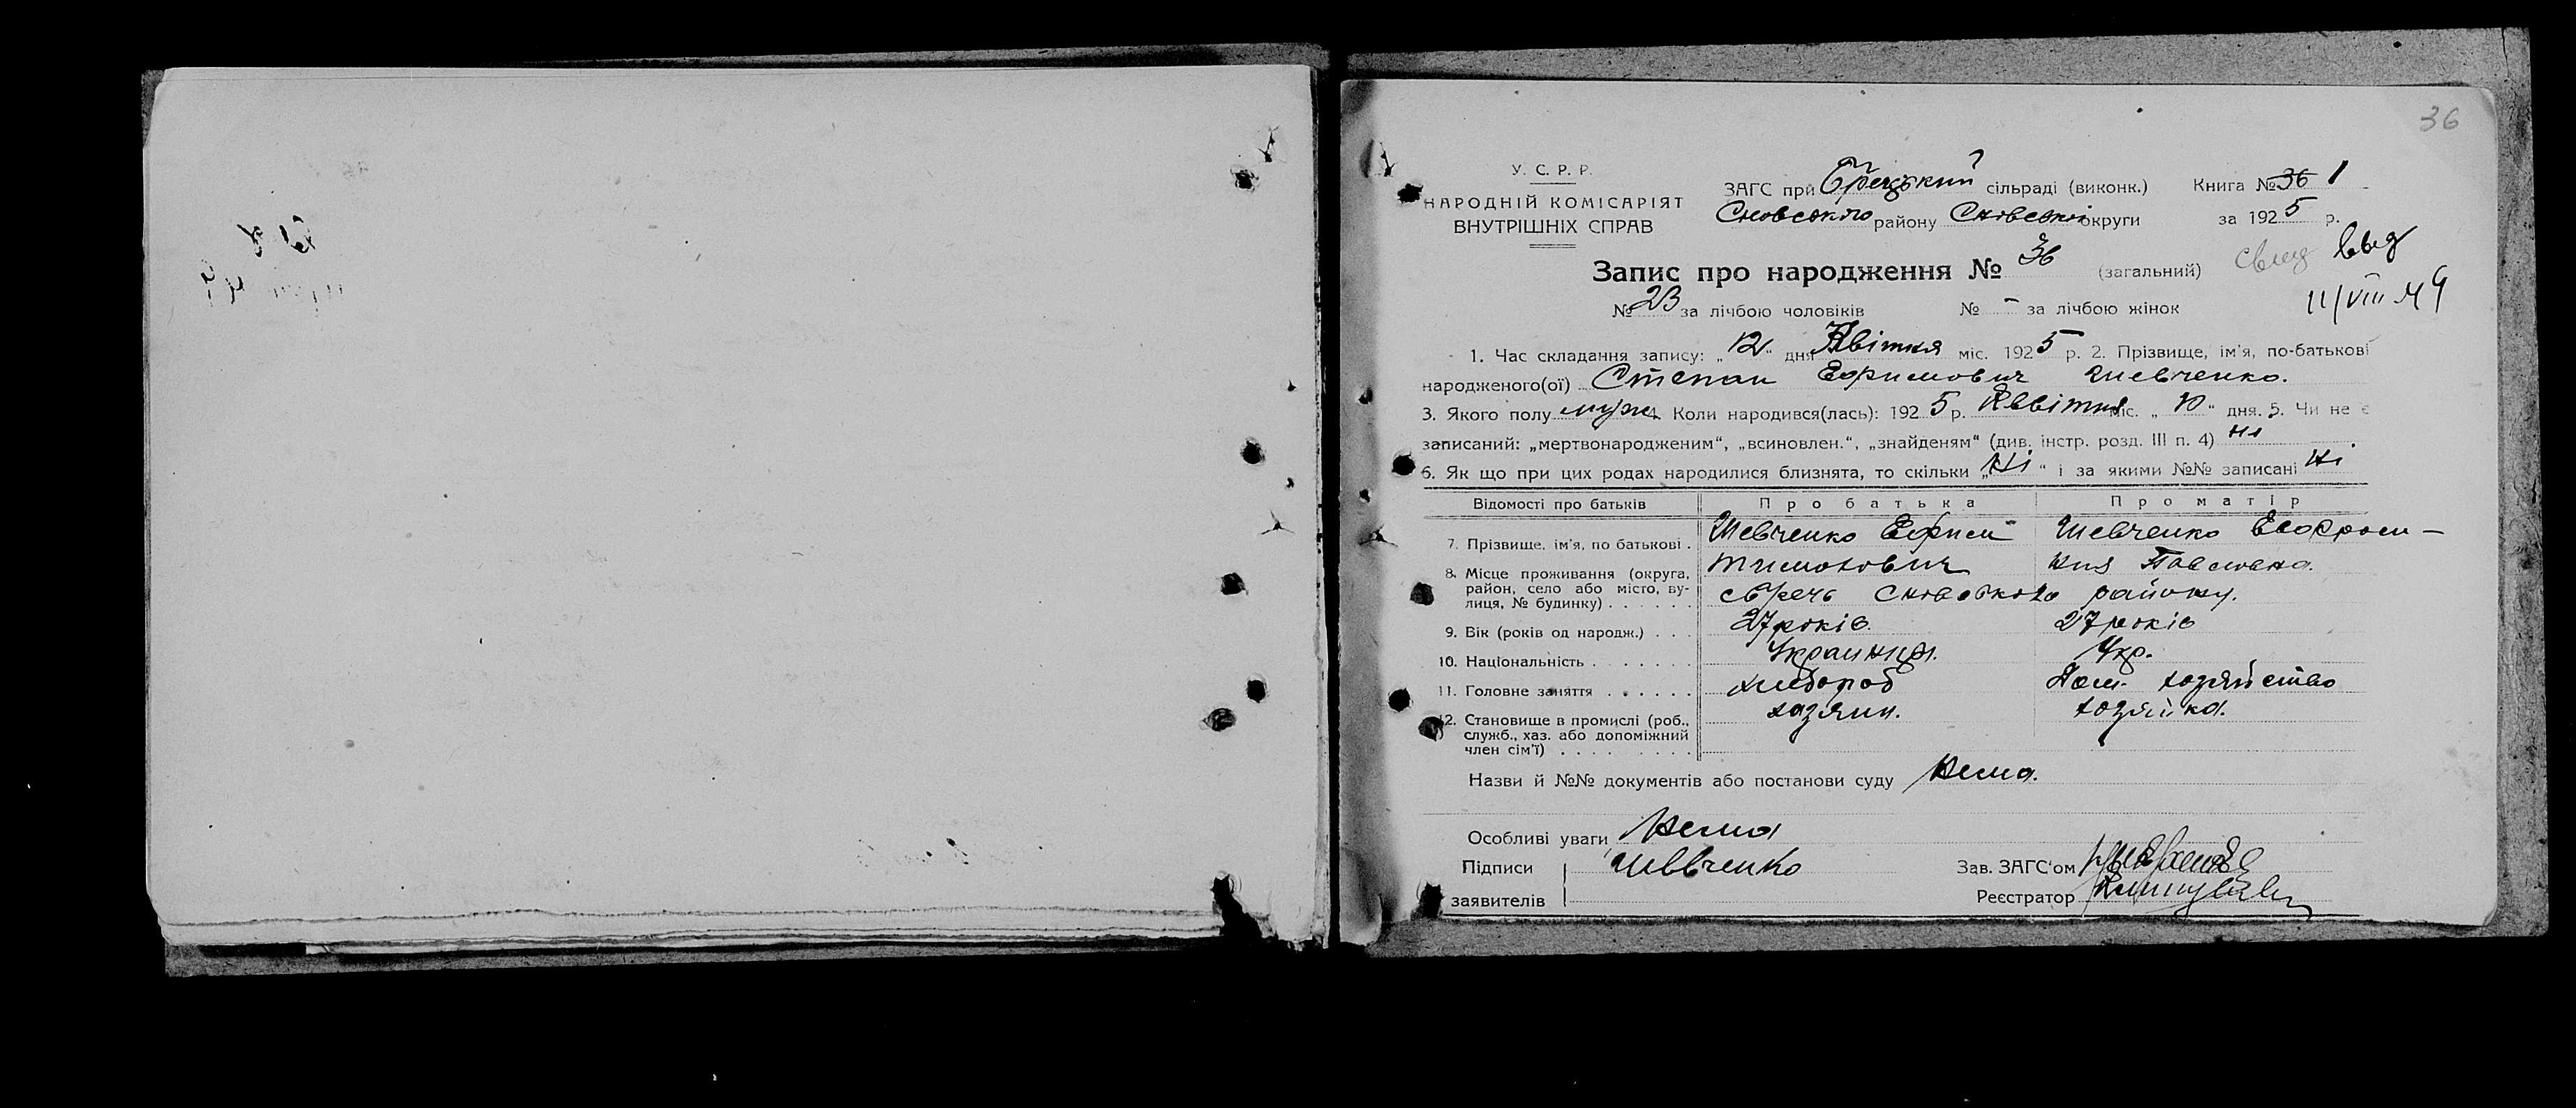 36
У. С. Р. Р.
НАРОДНІЙ КОМІСАРІЯТ
ВНУТРІШНІХ СПРАВ
ЗАГС при сільраді (виконк.) Книга № 36 1
Сновського району Сновської округи за 1925 р.
Запис про народження № 36 (загальний)
№ 23 за лічбою чоловіків № - за лічбою жінок
11/VIII 49
1. Час складання запису: „12" дня Квітня міс. 1925 р. 2. Прізвище, ім'я, по-батькові
народженого(ої) Степан Ефримович Шевченко.
3. Якого полу муж. 4. Коли народився(лась): 1925 р. Квітня міс. „10" дня. 5. Чи не є
записаний: „мертвонародженим", „всиновлен.", „знайденям" (див. інстр. розд. III п. 4) Ні
6. Як що при цих родах народилися близнята, то скільки „Ні" і за якими №№ записані Ні
Відомості про батьків Про батька Про матір
7. Прізвище, ім'я, по батькові . Шевченко Ефрим Шевченко Евфроси-
Тимохович ния Павловна.
8. Місце проживання (округа, район, село або місто, вулиця, № будинку) . . . . . . Сновського району.
9. Вік (років од народж.) . . . 27 років. 27 років
10. Національність . . . . . . . Украинци. Укр.
11. Головне заняття . . . . . . хлебороб Дом. хозяйство
12. Становище в промислі (роб., служб., хаз. або допоміжний член сім'ї) . . . . . . . . . хозяин. хозяйка.
Назви й №№ документів або постанови суду Нема.
Особливі уваги Нема
Підписи Шевченко Зав. ЗАГС'ом
заявителів Реєстратор